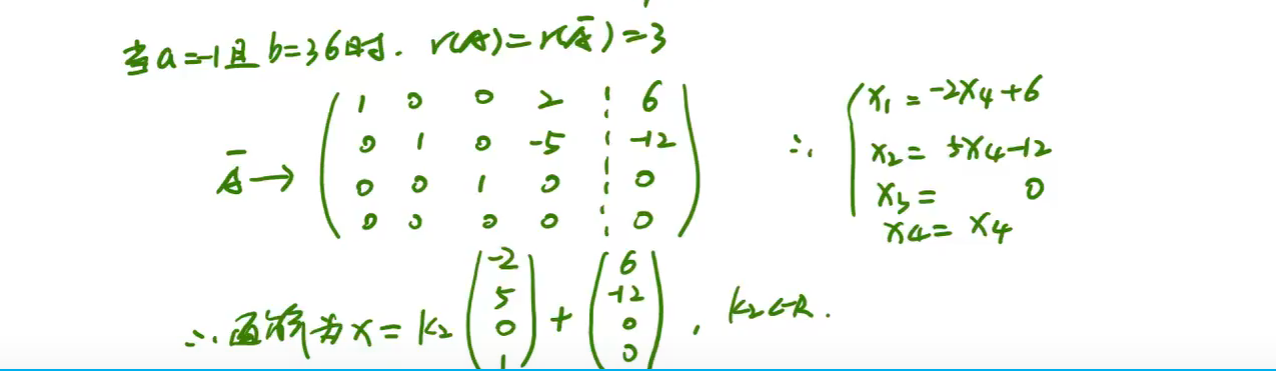 当a=-1且b=36时. r(A)=r(Ā)=3
Ā→ ( 1 0 0 2 ¦ 6
0 1 0 -5 ¦ -12
0 0 1 0 ¦ 0
0 0 0 0 ¦ 0 )
∴ { x₁=-2x₄+6
x₂= 5x₄-12
x₃= 0
x₄= x₄
∴通解为x=k₂ (-2 5 0 1) + (6 -12 0 0), k₂∈R.